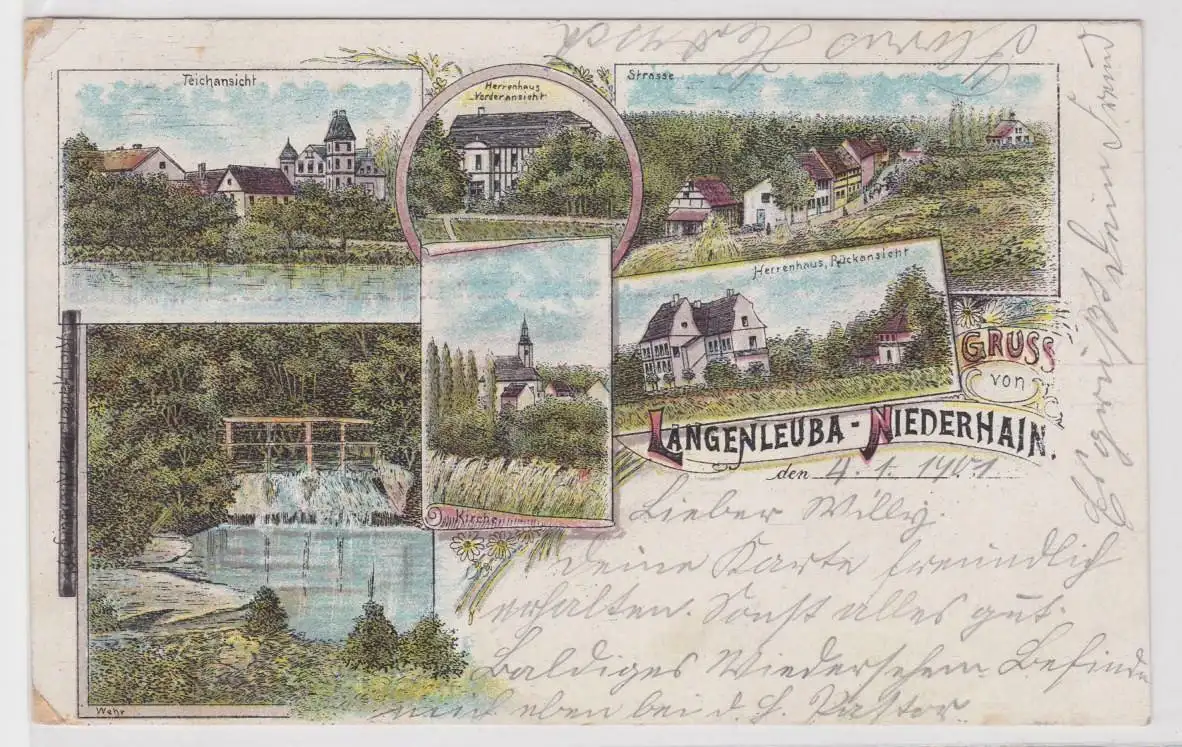 Teichansicht
Herrenhaus
Vorderansicht
Strasse
Herrenhaus, Rückansicht
Kirche
Wehr
GRUSS
von
LANGENLEUBA-NIEDERHAIN.
den 4. 1. 1901
Lieber Willy.
Deine Karte freundlich
erhalten. Sonst alles gut.
Baldiges Wiedersehen. Befinde
mich eben bei d. H. Pastor.